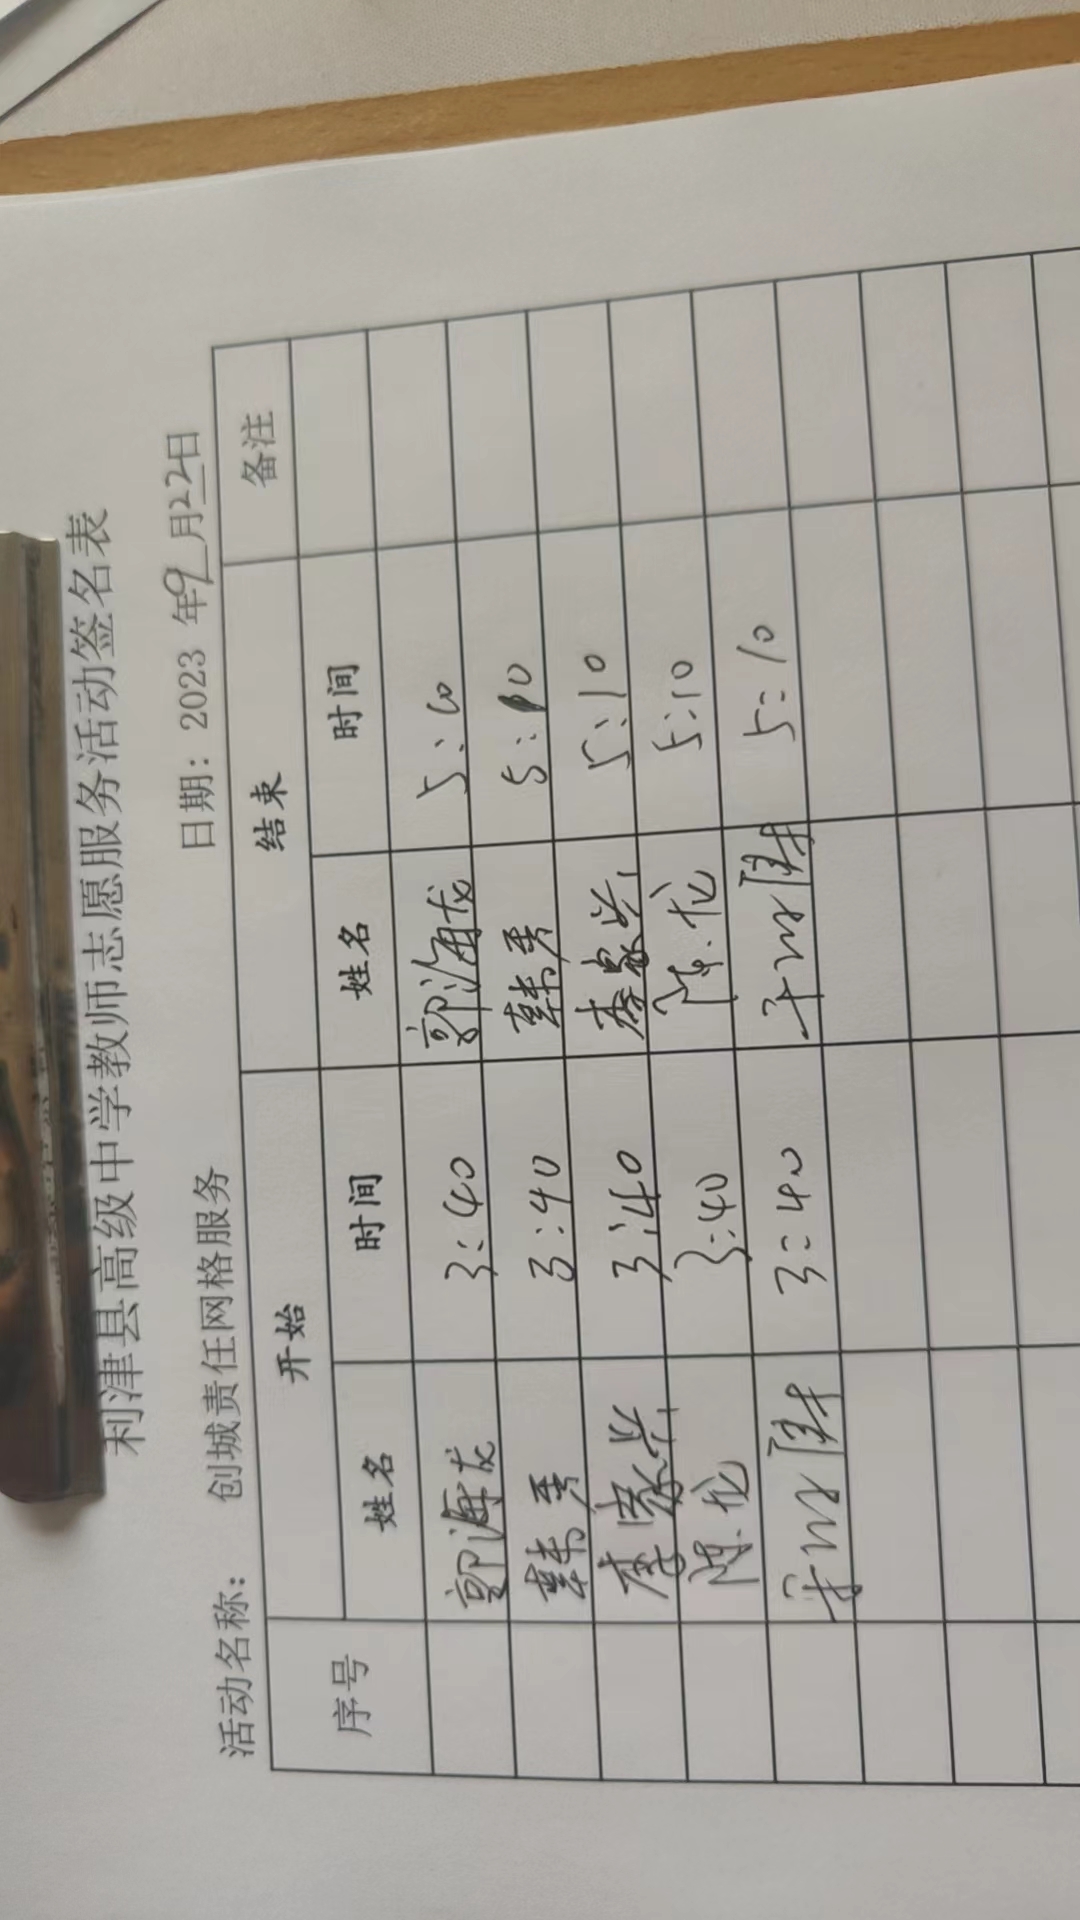 利津县高级中学教师志愿服务活动签名表
活动名称： 创城责任网格服务 日期：2023 年9月22日
序号 开始 结束 备注
姓名 时间 姓名 时间
郭海龙 3:40 郭海龙 5:10
韩秀 3:40 韩秀 5:10
3:40 5:10
陈龙 3:40 陈龙 5:10
3:40 5:10